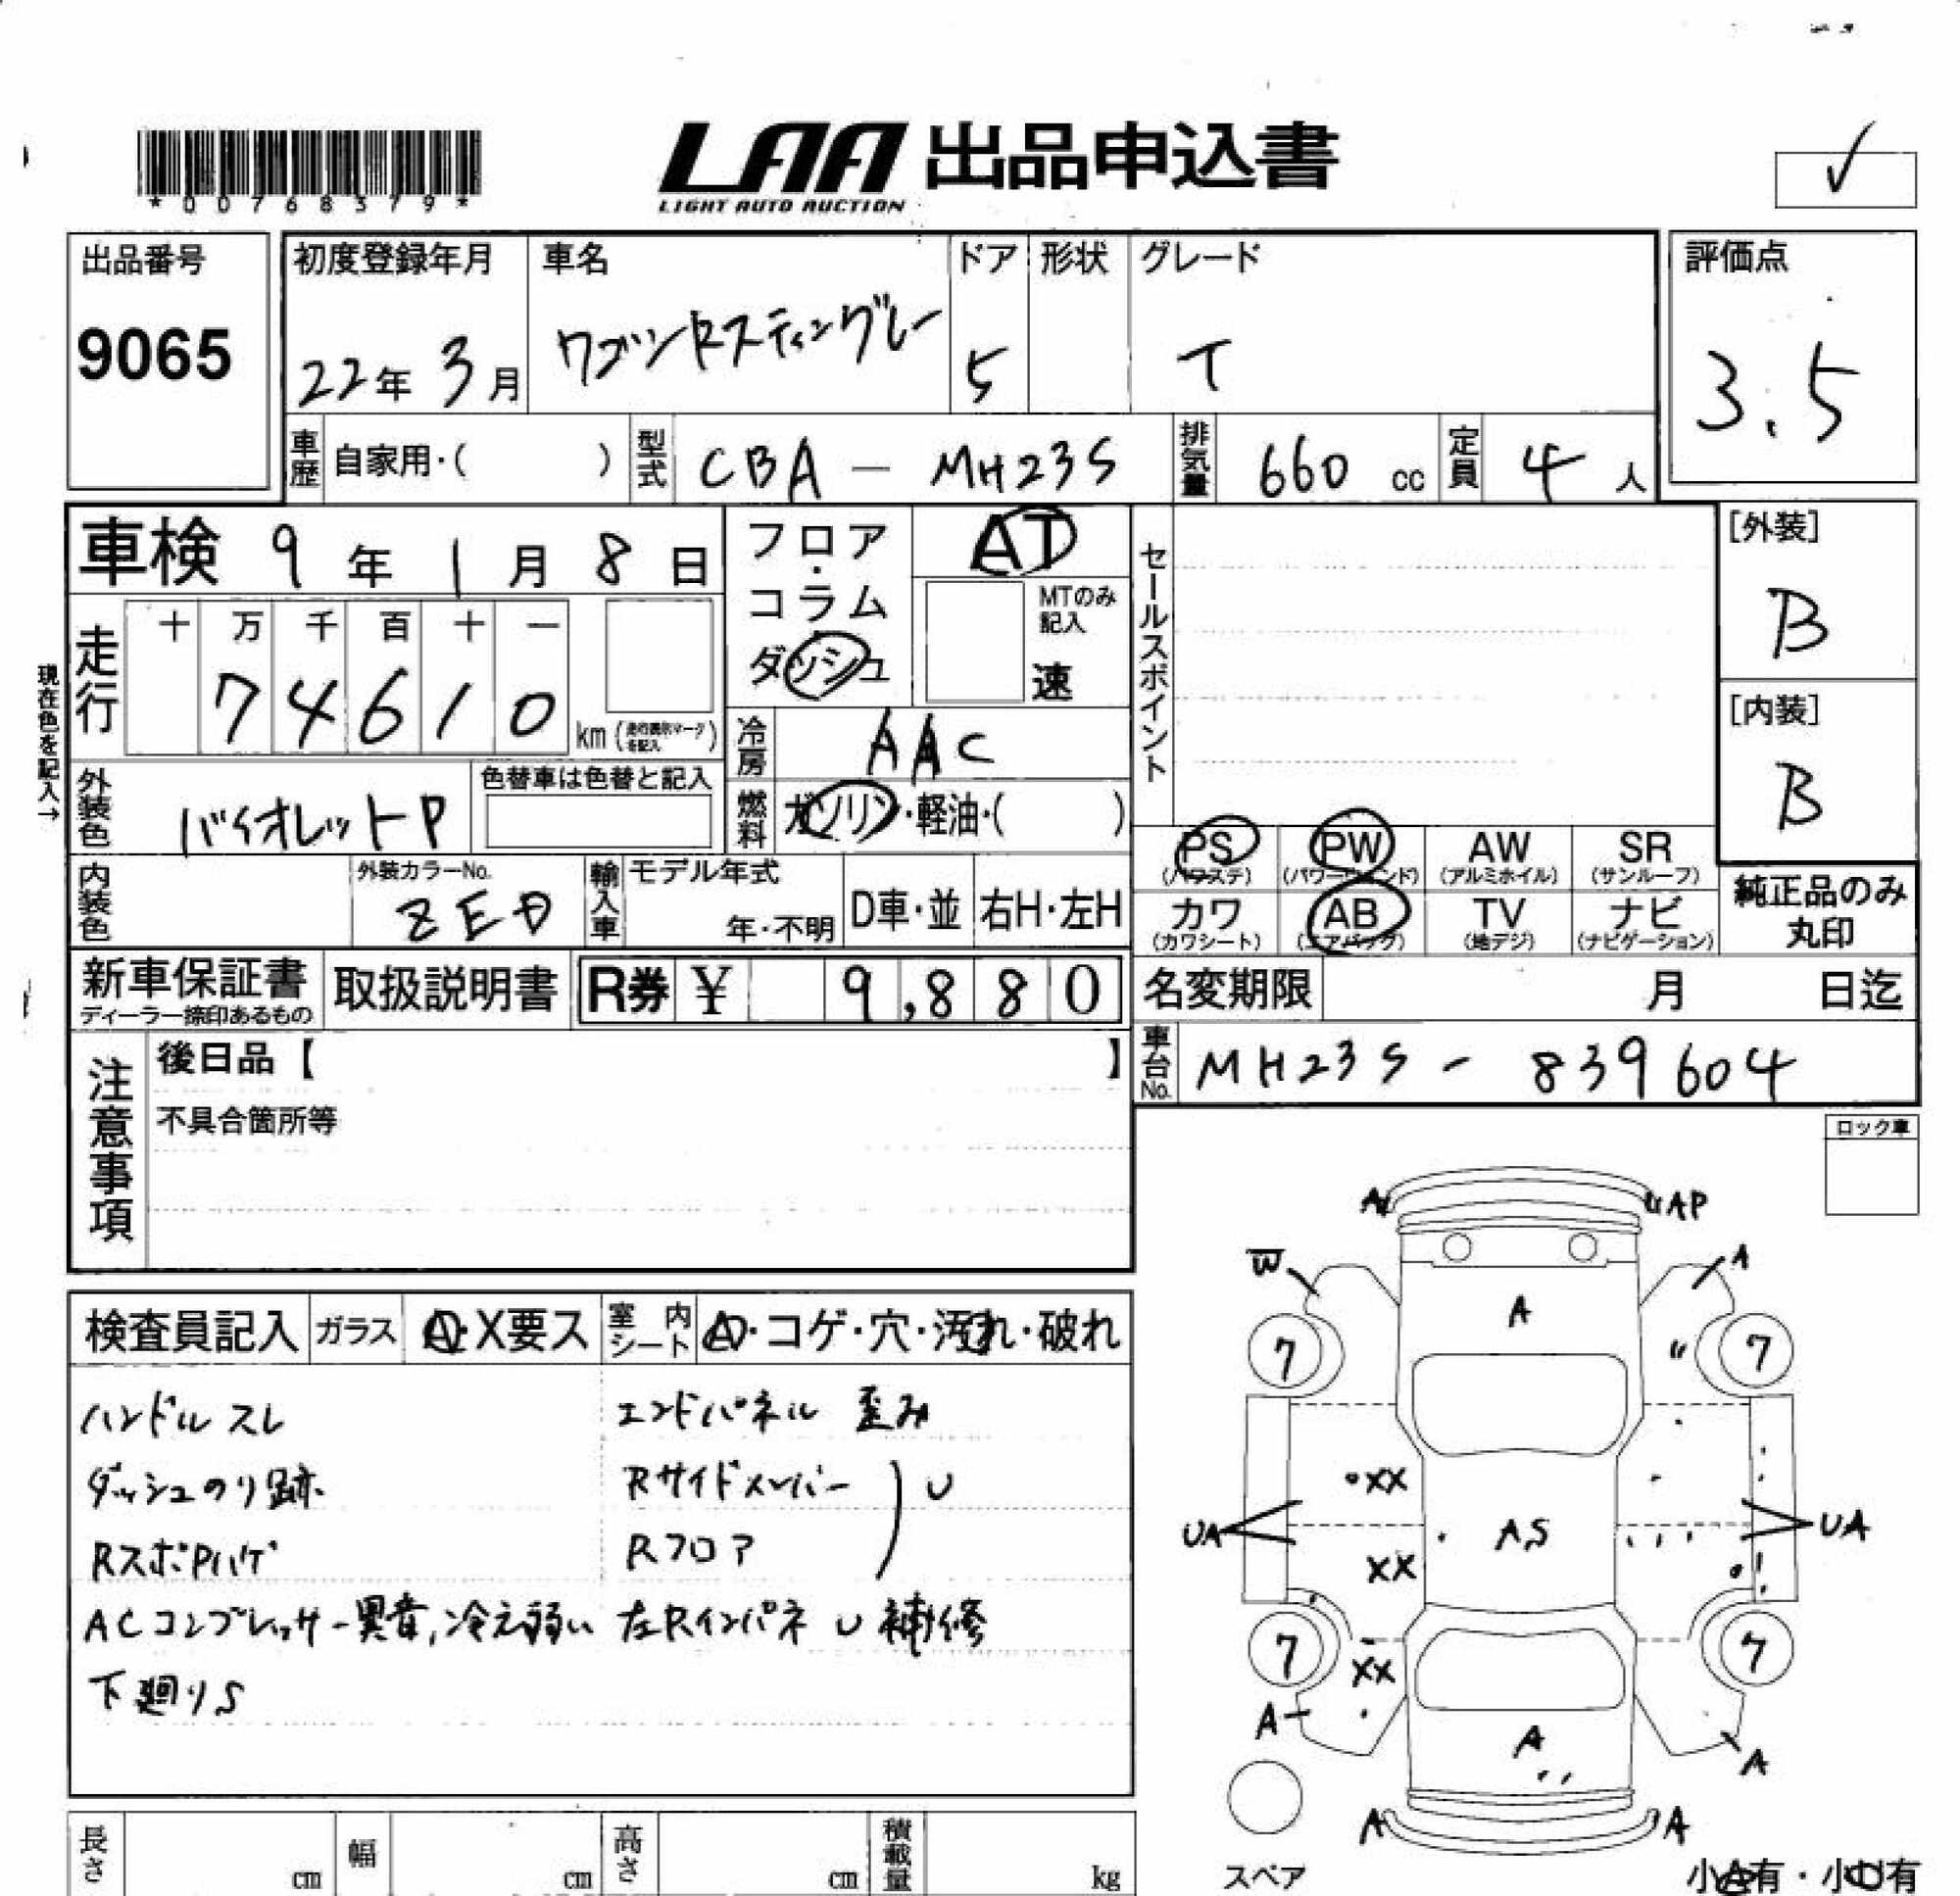 *00768379*
LAA 出品申込書
LIGHT AUTO AUCTION
✓
出品番号
9065
初度登録年月
22年 3月
車名
ワゴンRスティングレー
ドア
5
形状
グレード
T
評価点
3.5
車歴
自家用・( )
型式
CBA - MH23S
排気量
660 cc
定員
4 人
車検 9年 1月 8日
フロア・コラム
ダッシュ
AT
MTのみ記入
速
セールスポイント
[外装]
B
[内装]
B
現在色を記入→
走行
十 万 千 百 十 一
7 4 6 1 0
km
冷房
AAC
外装色
バイオレットP
色替車は色替と記入
燃料
ガソリン・軽油・( )
PS
(パワステ)
PW
(パワーウインド)
AW
(アルミホイル)
SR
(サンルーフ)
内装色
外装カラーNo.
ZED
輸入車
モデル年式
年・不明
D車・並
右H・左H
カワ
(カワシート)
AB
(エアバッグ)
TV
(地デジ)
ナビ
(ナビゲーション)
純正品のみ
丸印
新車保証書
ディーラー捺印あるもの
取扱説明書
R券 ¥ 9,880
名変期限 月 日迄
注意事項
後日品【 】
不具合箇所等
車台No.
MH23S - 839604
ロック車
検査員記入
ガラス
A・X要ス
室内シート
A・コゲ・穴・汚れ・破れ
ハンドルスレ
エンドパネル 歪み
ダッシュのり跡
Rサイドメンバー
U
RスポPハゲ
Rフロア
ACコンプレッサー異音,冷え弱い
左Rインパネ U 補修
下廻りS
A
AP
W
A
A
7
7
XX
UA
AS
UA
XX
7
7
XX
A
A
A
A
A
スペア
長さ cm
幅 cm
高さ cm
積載量 kg
小A有・小U有